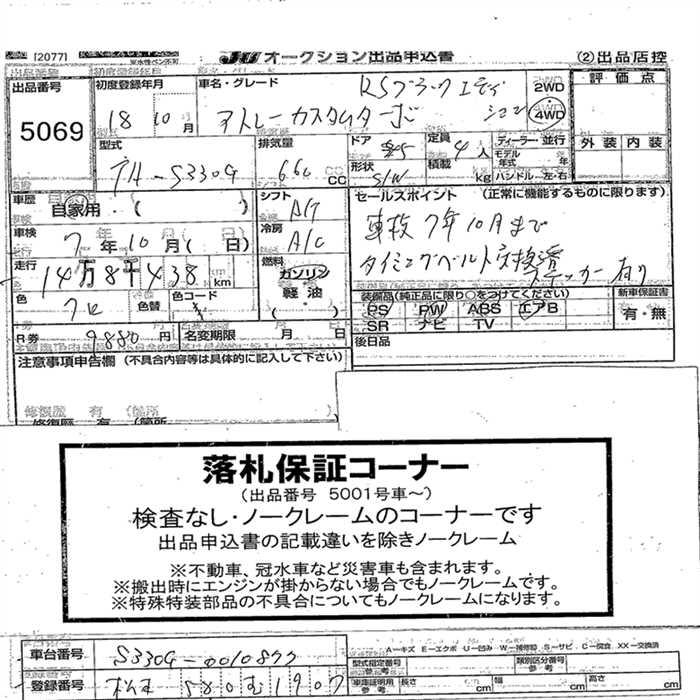 [2077]
JU オークション出品申込書 (2)出品店控
出品番号 初度登録年月 車名・グレード 評価点
RSブラックエディション 2WD 4WD
5069 18年10月 アトレーカスタムターボ
型式 排気量 ドア 定員 ディーラー・並行 外装 内装
TA-S330G 660 CC 5 4人 モデル年式 年
形状 S/W 積載 kg ハンドル・左・右
車歴 シフト セールスポイント (正常に機能するものに限ります)
自家用・( ) A/T 車検7年10月まで
車検 冷房
7年10月( 日) A/C タイミングベルト交換済
走行 燃料 ステッカー有り
14万8千438 km ガソリン
色 色替 色コード 軽油・ 装備品(純正品に限り○をつけてください) 新車保証書
クロ PS PW ABS エアB 有・無
SR ナビ TV
R券 9880円 名変期限 月 日 後日品
注意事項申告欄 (不具合内容等は具体的に記入して下さい)
修復歴 有 (箇所
落札保証コーナー
(出品番号 5001号車~)
検査なし・ノークレームのコーナーです
出品申込書の記載違いを除きノークレーム
※不動車、冠水車など災害車も含まれます。
※搬出時にエンジンが掛からない場合でもノークレームです。
※特殊特装部品の不具合についてもノークレームになります。
A-キズ E-エクボ U-凹み W-補修跡 S-サビ C-腐食 XX-交換済
車台番号 S330G-0010877 型式指定番号 参考 類別区分番号 参考
登録番号 松本 580む1907 車庫証明用 参考 長さ cm 幅 cm 高さ cm